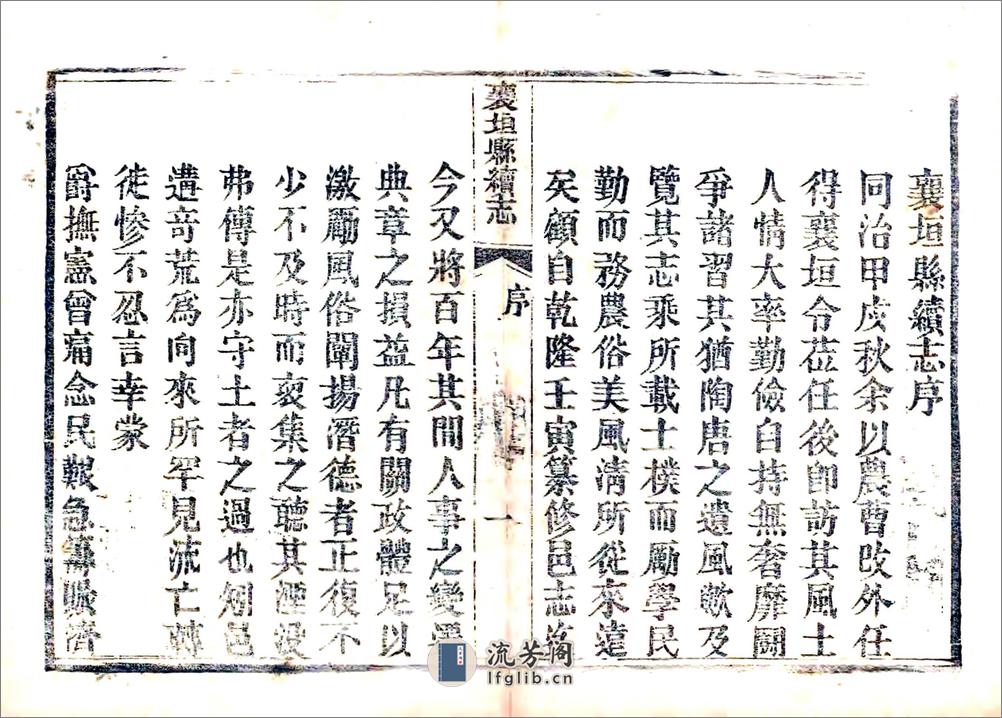 襄垣縣續志序
同治甲戌秋余以農曹改外任
得襄垣令莅任後卽訪其風土
人情大率勤儉自持無奢靡鬪
爭諸習其猶陶唐之遺風歟及
覽其志乘所載士樸而勵學民
勤而務農俗美風淸所從來遠
矣顧自乾隆壬寅纂修邑志迄
襄垣縣續志
序
一
今又將百年其間人事之變遷
典章之損益凡有關政體足以
激勵風俗闡揚潛德者正復不
少不及時而裒集之聽其湮沒
弗傳是亦守土者之過也矧邑
遘奇荒爲向來所罕見流亡轉
徙慘不忍言幸蒙
爵撫憲曾痛念民艱急籌賑濟
流芳阁
lfglib.cn